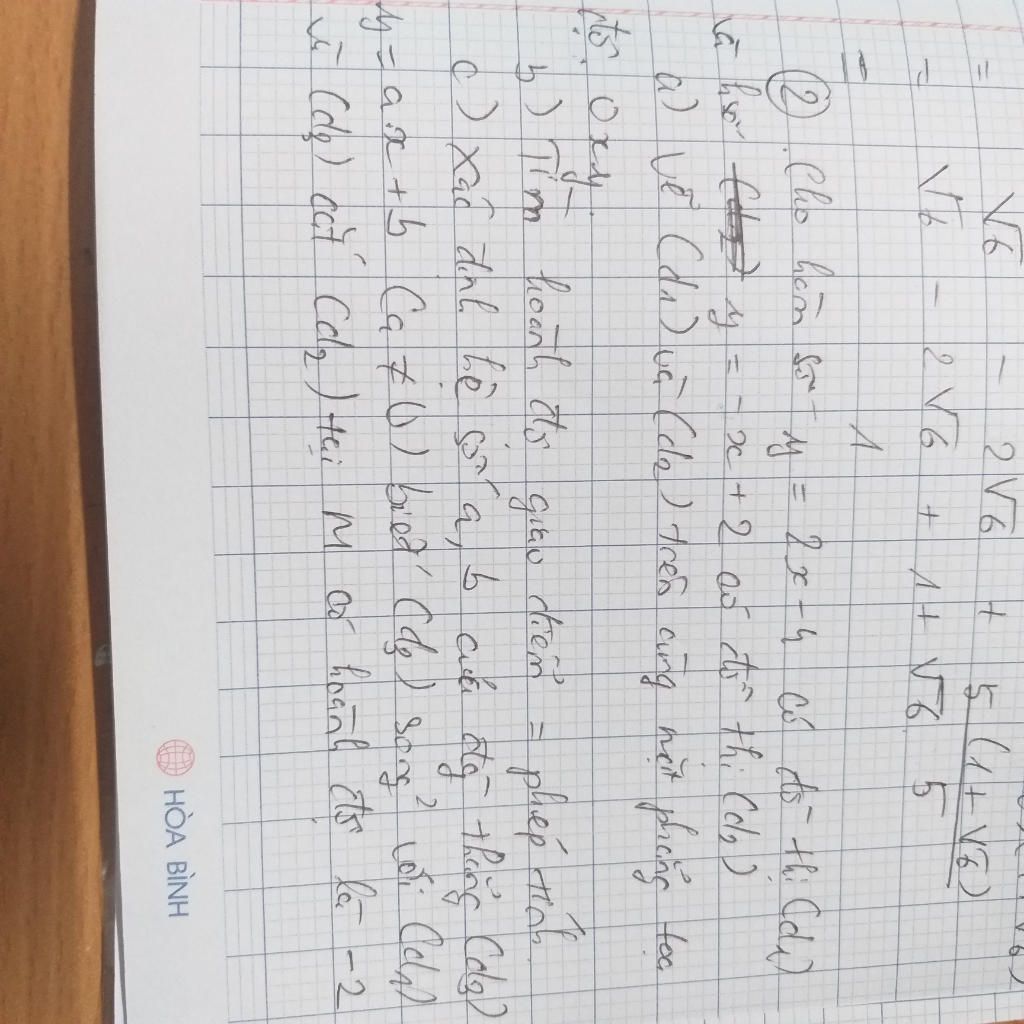 = √6 - 2√6 + 5(1+√6)
5
= √6 - 2√6 + 1 + √6
= 1
② Cho hàm số y = 2x - 4 có đồ thị (d1)
và hsố y = -x + 2 có đồ thị (d2)
a) Vẽ (d1) và (d2) trên cùng mặt phẳng tọa
độ Oxy.
b) Tìm hoành độ giao điểm = phép tính.
c) Xác định hệ số a, b của đg thẳng (d3)
y = ax + b (a ≠ 0) biết (d3) song² với (d1)
và (d3) cắt (d2) tại M có hoành độ là -2
HÒA BÌNH